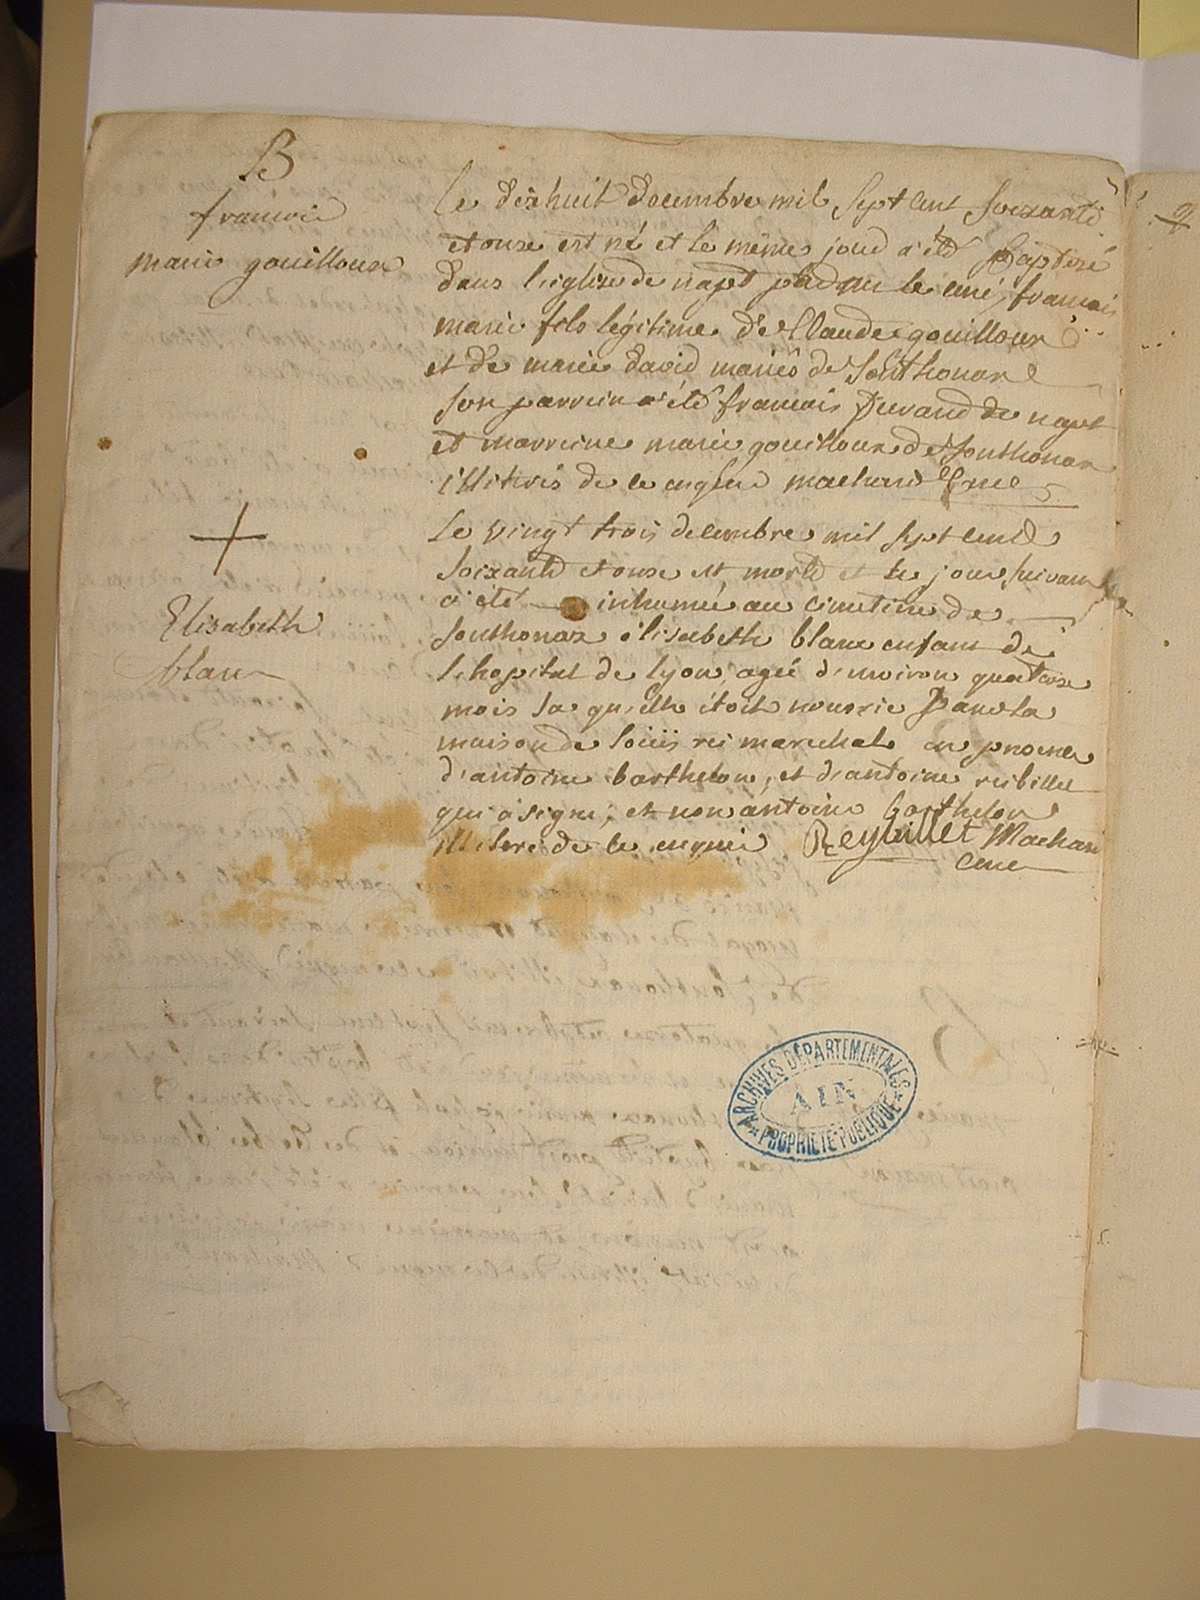 B
francois
marie gouilloux
Le dixhuit decembre mil sept cent soixante
et onze est né et le même jour a été Baptisé
dans l'eglise de napt par moi le curé, francois
marie fils légitime de Claude gouilloux
et de marie david mariés de Sonthonax
son parrein a été francois Durand de napt
et marreine marie gouilloux de Sonthonax
illitérés de ce enquis machard Curé
+
Elisabeth
blanc
Le vingt trois decembre mil sept cent
soixante et onze est morte et le jour suivant
a été inhumée au cimetiere de
Sonthonax élisabeth blanc enfant de
l'hopital de lyon, agée d'environ quatorze
mois la qu'elle étoit nourrie Dans la
maison de loüis rei marechal en presence
d'antoine barthelon, et d'antoine reibillet
qui a signé, et non antoine barthelon
illitere de ce enquis Reybillet Machard
Curé
ARCHIVES DÉPARTEMENTALES
AIN
PROPRIÉTÉ PUBLIQUE